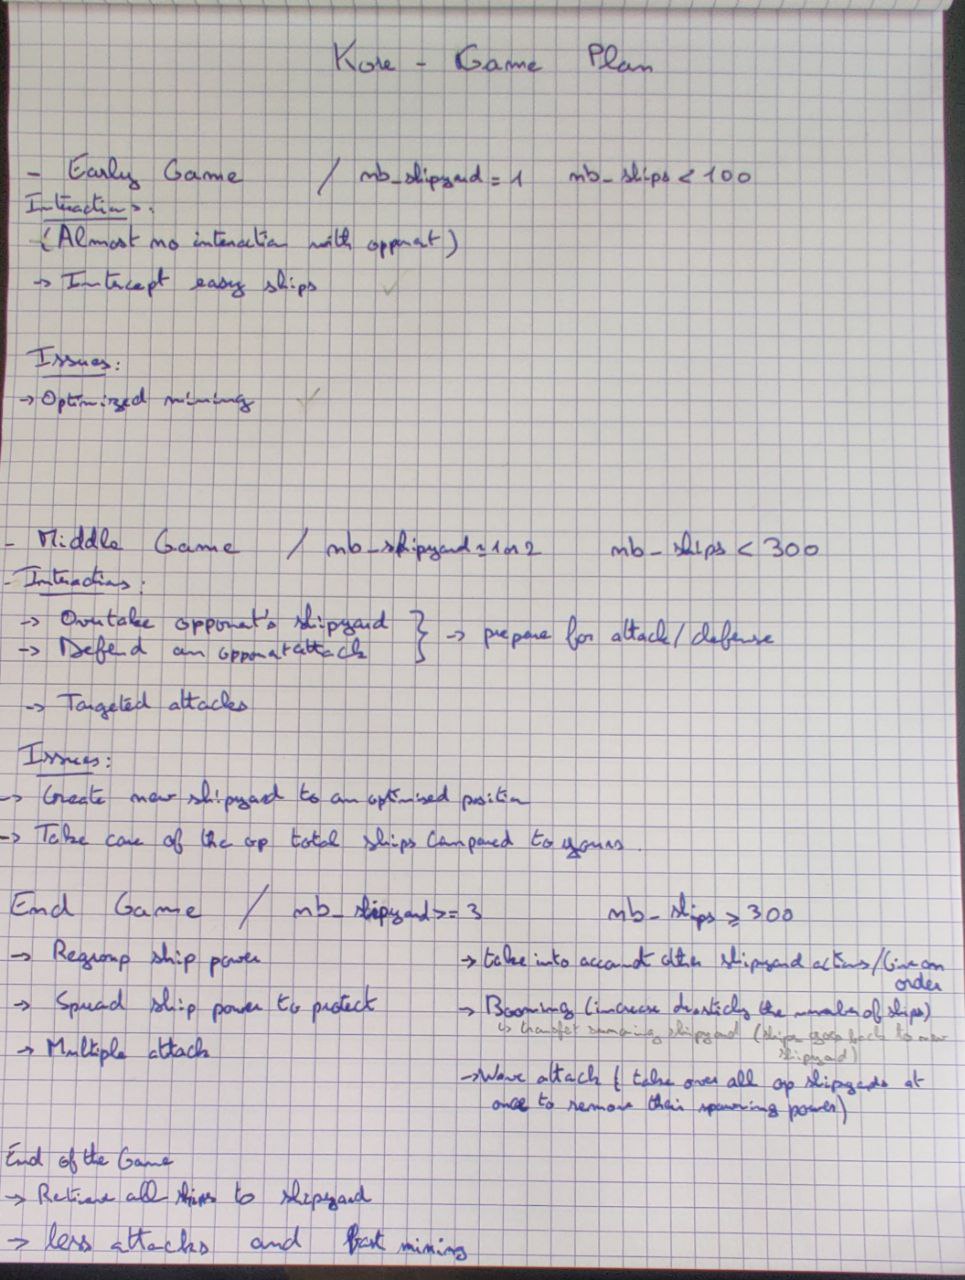 Kore - Game Plan
- Early Game / mb_shipyard = 1 mb_ships < 100
Interactions:
(Almost no interaction with opponent)
-> Intercept easy ships ✓
Issues:
-> Optimized mining ✓
- Middle Game / mb_shipyard = 1 or 2 mb_ships < 300
- Interactions:
-> Overtake opponent's shipyard
-> Defend an opponent attack } -> prepare for attack/defense
-> Targeted attacks
Issues:
-> Create new shipyard to an optimised position
-> Take care of the op total ships compared to yours.
End Game / mb_shipyard >= 3 mb_ships ≥ 300
-> Regroup ship power
-> Spread ship power to protect
-> Multiple attack
-> take into account other shipyard actions/
order
-> Booming (increase drastically the number of ships)
↳ transfer shipyard (ships goes back to new
shipyard)
-> Wave attack ( take over all op shipyards at
once to remove their spawning power)
End of the Game
-> Retrieve all ships to shipyard
-> less attacks and fast mining